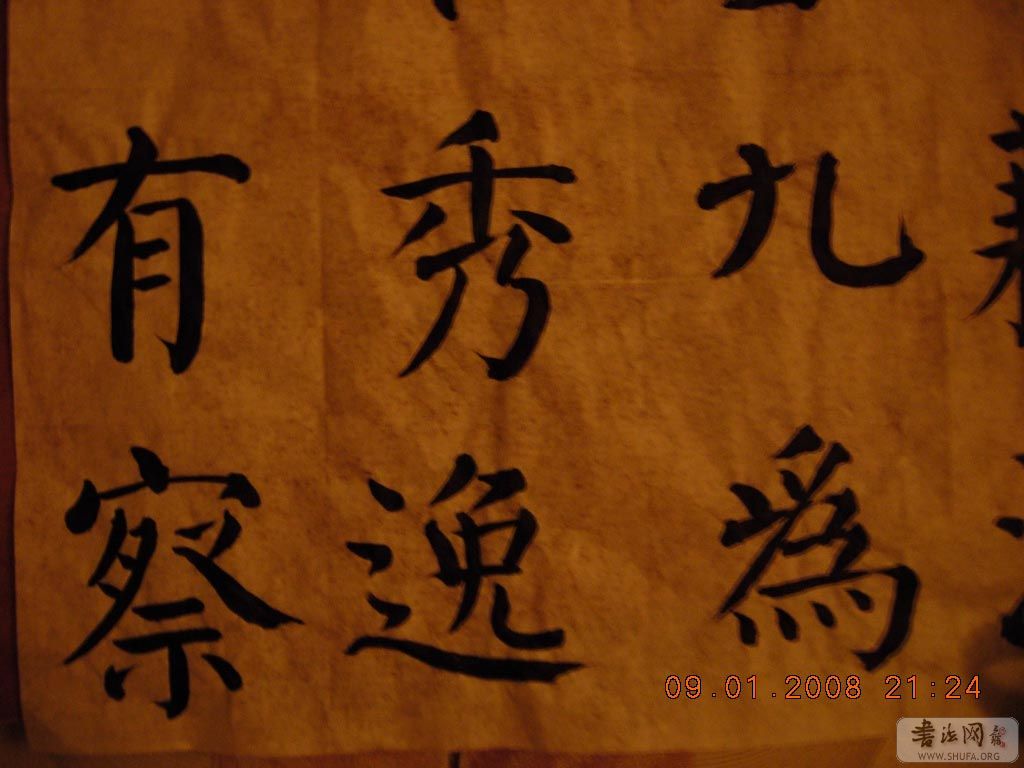 九爲
秀逸
有察
09.01.2008 21:24
書法网
WWW.SHUFA.ORG